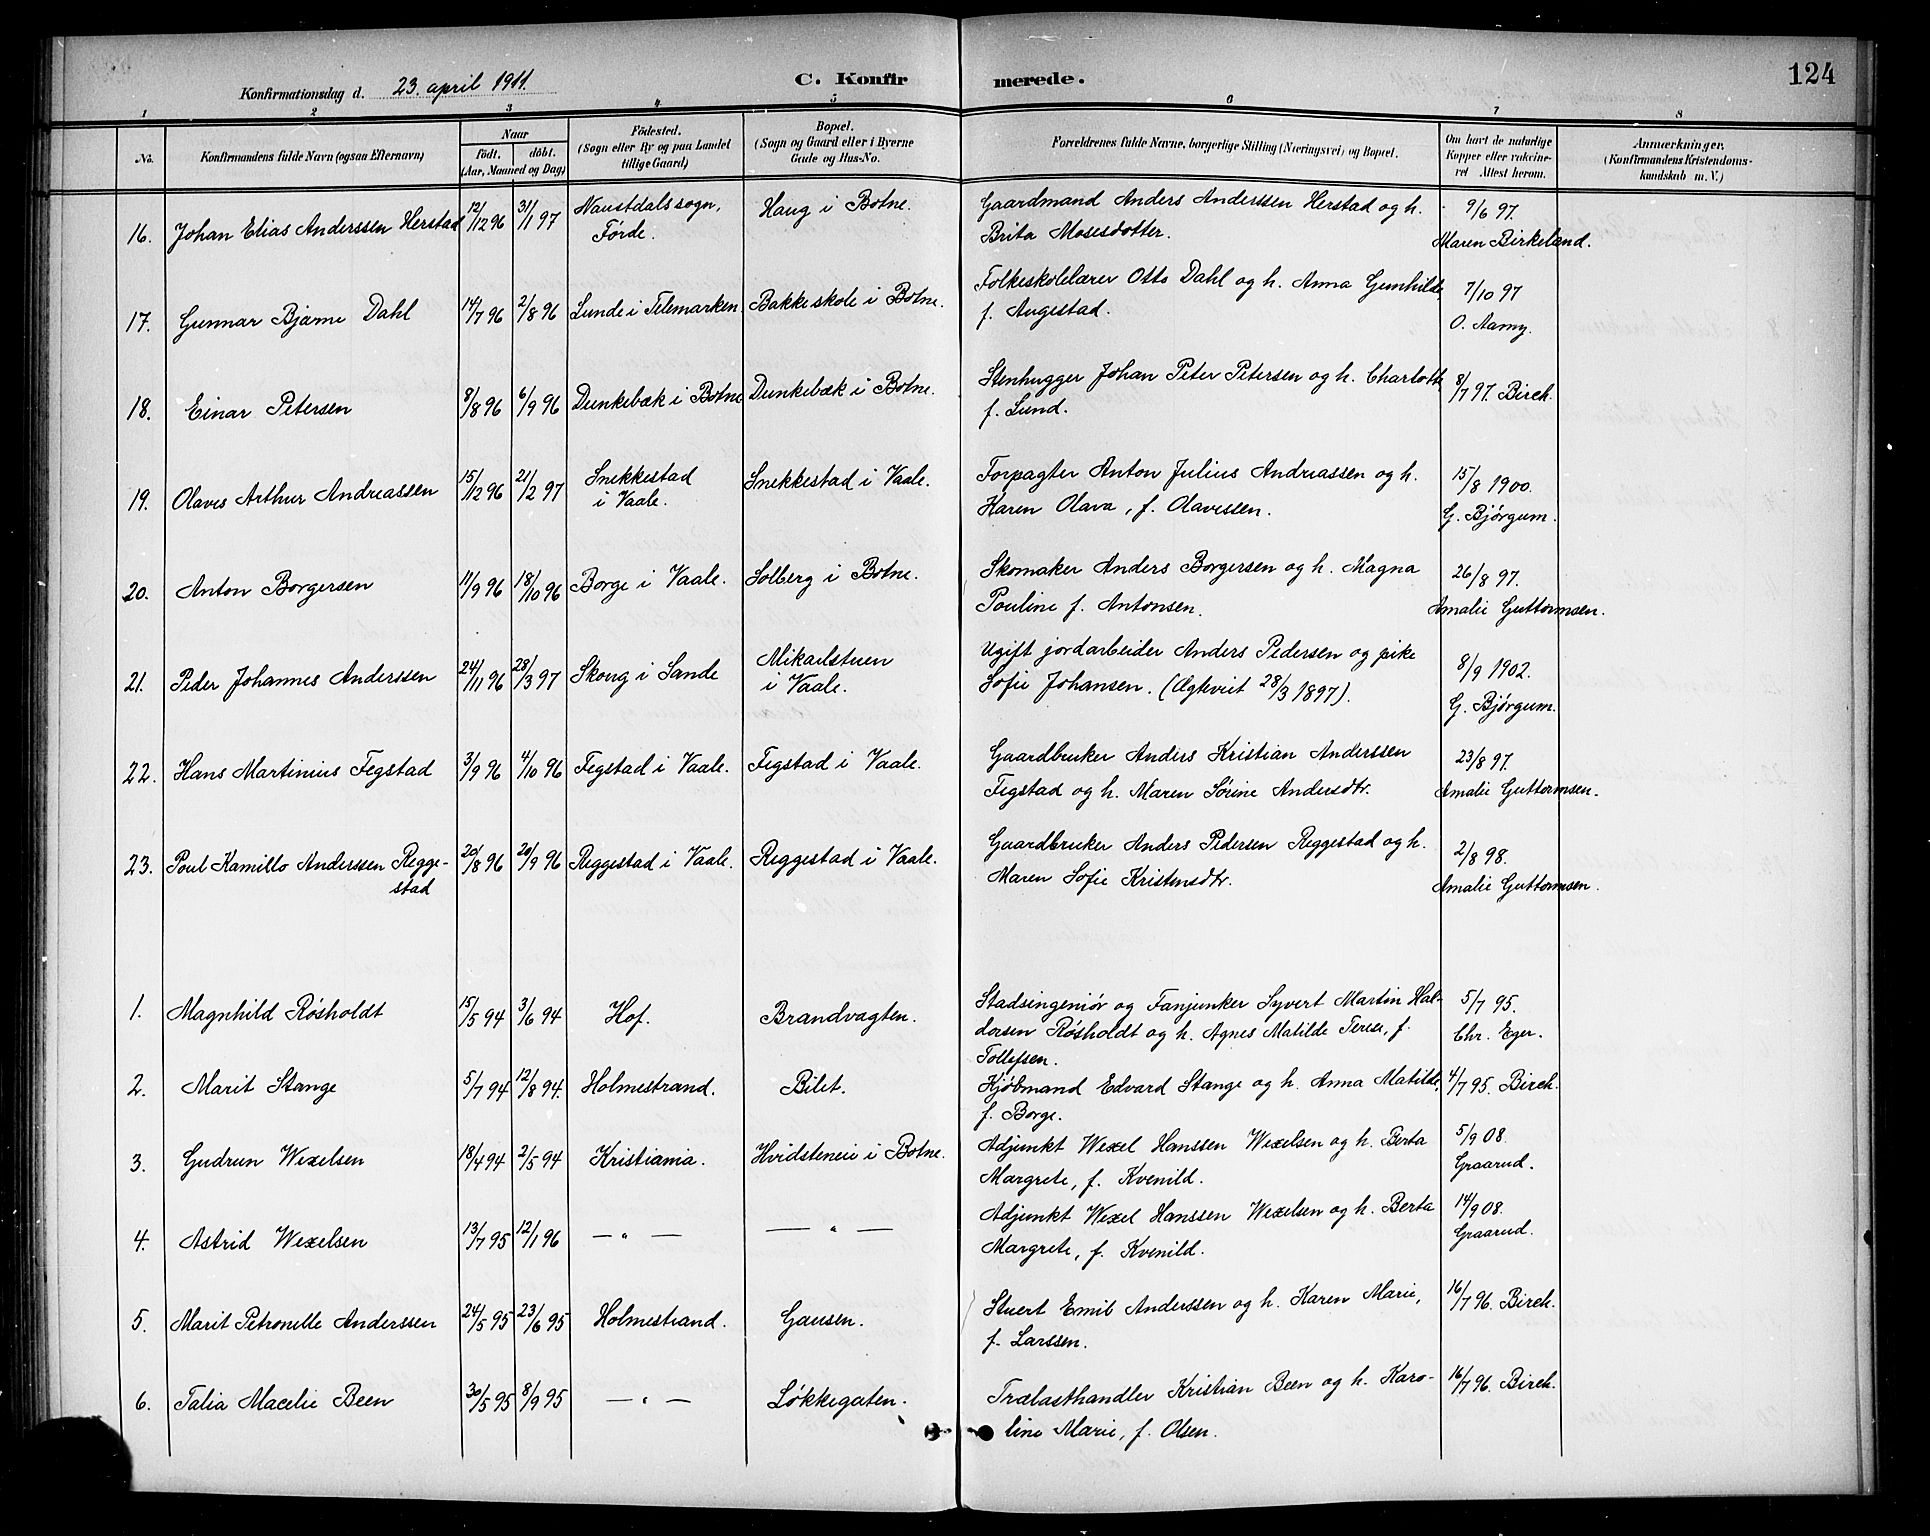 124
Konfirmationsdag d. 23. april 1911.
C. Konfirmerede.
1 2 3 4 5 6 7 8
No.
Konfirmandens fulde Navn (ogsaa Efternavn)
Naar
födt. döbt.
(Aar, Maaned og Dag)
Födested.
(Sogn eller By og paa Landet
tillige Gaard)
Bopæl.
(Sogn og Gaard eller i Byerne
Gade og Hus-No.
Forældrenes fulde Navne, borgerlige Stilling (Næringsvei) og Bopæl.
Om havt de naturlige
Kopper eller vakcine-
ret Attest herom.
Anmærkninger.
(Konfirmandens Kristendoms-
kundskab m. V.)
16. Johan Elias Anderssen Herstad 12/12 96 31/1 97 Naustdals sogn, Förde. Haug i Botne. Gaardmand Anders Anderssen Herstad og h. Brita Mosesdotter. 9/6 97. Maren Birkeland.
17. Gunnar Bjarne Dahl 14/7 96 2/8 96 Lunde i Telemarken Bakkeskole i Botne. Folkeskolelærer Otto Dahl og h. Anna Gunhilde, f. Augestad. 7/10 97 O. Aamy.
18. Einar Petersen 8/8 96 6/9 96 Dunkebæk i Botne Dunkebæk i Botne. Stenhugger Johan Peter Petersen og h. Charlotte f. Lund. 8/7 97. Birch.
19. Olaves Arthur Andreassen 15/12 96 21/2 97 Snekkestad i Vaale. Snekkestad i Vaale. Forpagter Anton Julius Andreassen og h. Karen Olava, f. Olavessen. 15/8 1900. G. Bjørgum.
20. Anton Borgersen 11/9 96 18/10 96 Borge i Vaale. Solberg i Botne. Skomaker Anders Borgersen og h. Magna Pouline f. Antonsen. 26/8 97. Amalie Guttormsen.
21. Peder Johannes Anderssen 24/11 96 28/3 97 Skoug i Sande Mikaelstuen i Vaale. Ugift jordarbeider Anders Pedersen og pike Sofie Johansen. (Ægteviet 28/3 1897). 8/9 1902. G. Bjørgum.
22. Hans Martinius Fegstad 3/9 96 4/10 96 Fegstad i Vaale. Fegstad i Vaale. Gaardbruker Anders Kristian Anderssen Fegstad og h. Maren Sørine Andersdtr. 23/8 97. Amalie Guttormsen.
23. Poul Kamillo Anderssen Reggestad 20/8 96 20/9 96 Reggestad i Vaale. Reggestad i Vaale. Gaardbruker Anders Pedersen Reggestad og h. Maren Sofie Kristensdtr. 2/8 98. Amalie Guttormsen.
1. Magnhild Røsholdt 15/5 94 3/6 94 Hof. Brandvagten. Stadsingeniør og Fanjunker Syvert Martin Haldorsen Røsholdt og h. Agnes Matilde Terese, f. Tollefsen. 5/7 95. Chr. Eger.
2. Marit Stange 5/7 94 12/8 94. Holmestrand. Bilet. Kjøbmand Edvard Stange og h. Anna Matilde, f. Borge. 4/7 95. Birch.
3. Gudrun Wexelsen 18/4 94 2/5 94 Kristiania. Hvidstenei i Botne. Adjunkt Wexel Hanssen Wexelsen og h. Berta Margrete, f. Kvenild. 5/9 08. Graarud.
4. Astrid Wexelsen 13/7 95 12/1 96 — " — — " — Adjunkt Wexel Hanssen Wexelsen og h. Berta Margrete, f. Kvenild. 14/9 08. Graarud.
5. Marit Petronelle Anderssen 24/5 95 23/6 95 Holmestrand. Gausen. Stuert Emil Anderssen og h. Karen Marie, f. Larssen. 16/7 96. Birch.
6. Talia Macelie Been 30/5 95 8/9 95 — " — Løkkegaten. Trælasthandler Kristian Been og h. Karoline Marie, f. Olsen. 16/7 96. Birch.